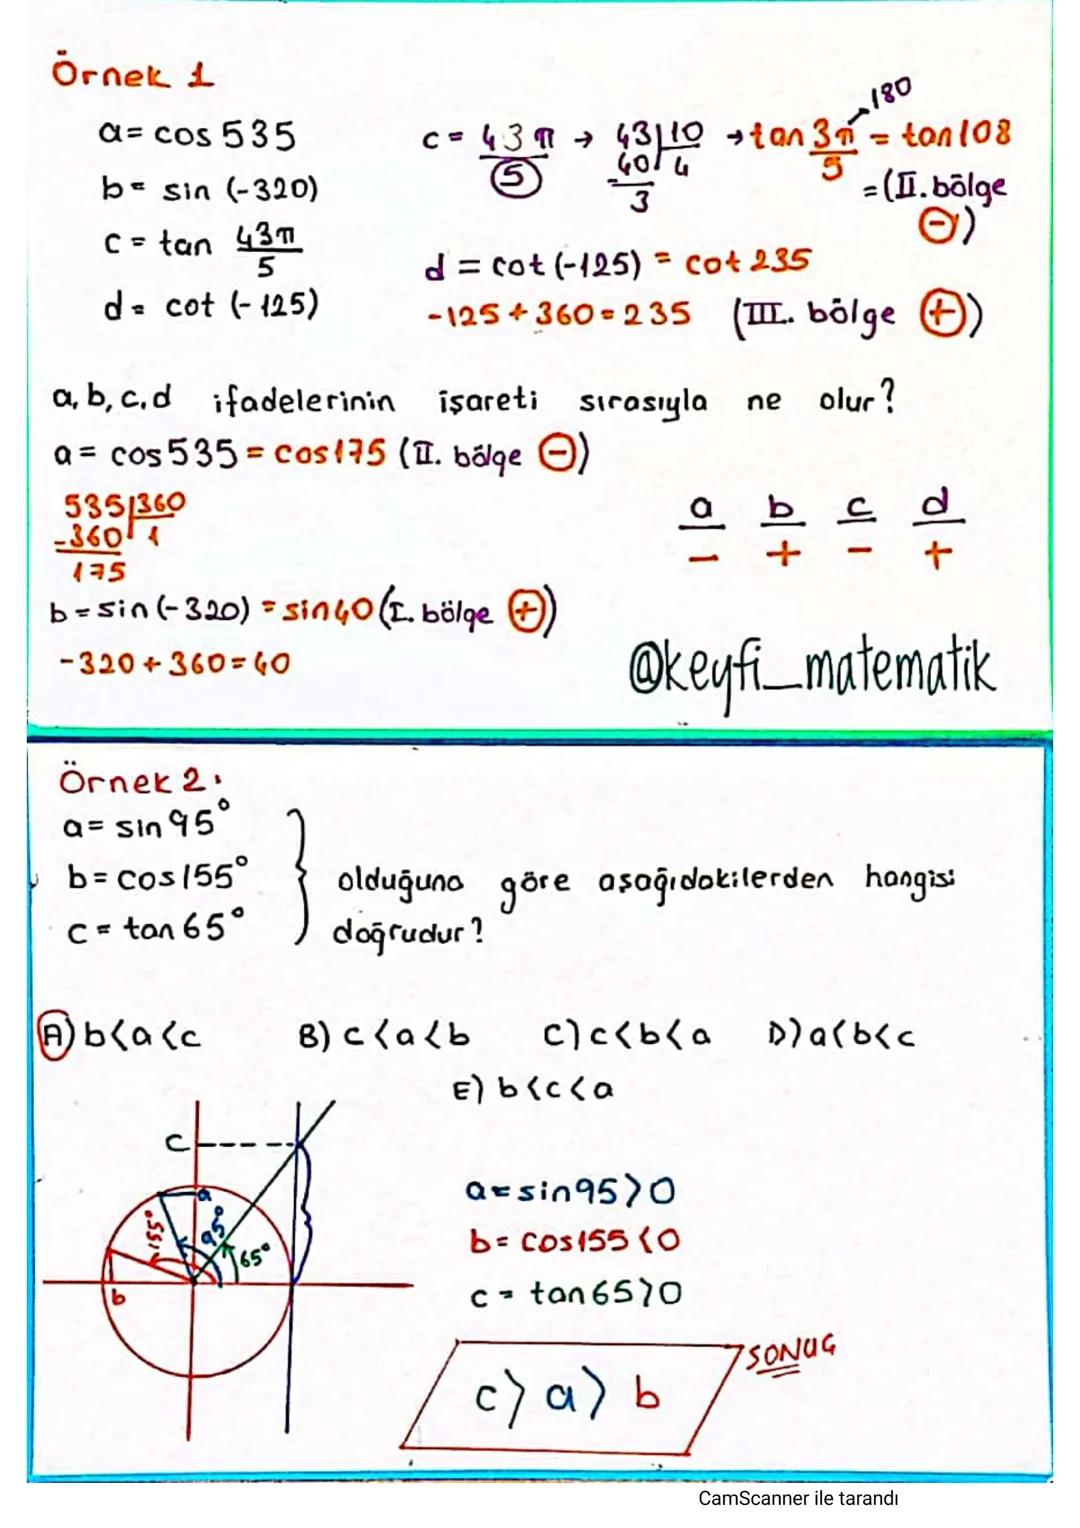 Örnek 1
a = cos 535
b = sin (-320)
c = tan 43π/5
d = cot (-125)
c = 43π/5 → 43|10 → tan 3π/5 = tan 108
180
-40 4
3
= (II. bölge -)
d = cot (-125) = cot 235
-125 + 360 = 235 (III. bölge +)
a, b, c, d ifadelerinin işareti sırasıyla ne olur?
a = cos 535 = cos 175 (II. bölge -)
535|360
-360 1
175
a b c d
- + - +
b = sin (-320) = sin 40 (I. bölge +)
-320 + 360 = 40
@keyfi_matematik
Örnek 2.
a = sin 95°
b = cos 155°
c = tan 65°
olduğuna göre aşağıdakilerden hangisi
doğrudur?
A) b<a<c B) c<a<b C) c<b<a D) a<b<c
E) b<c<a
c
a
155°
95°
65°
b
a = sin 95 > 0
b = cos 155 < 0
c = tan 65 > 0
SONUÇ
c > a > b
CamScanner ile tarandı